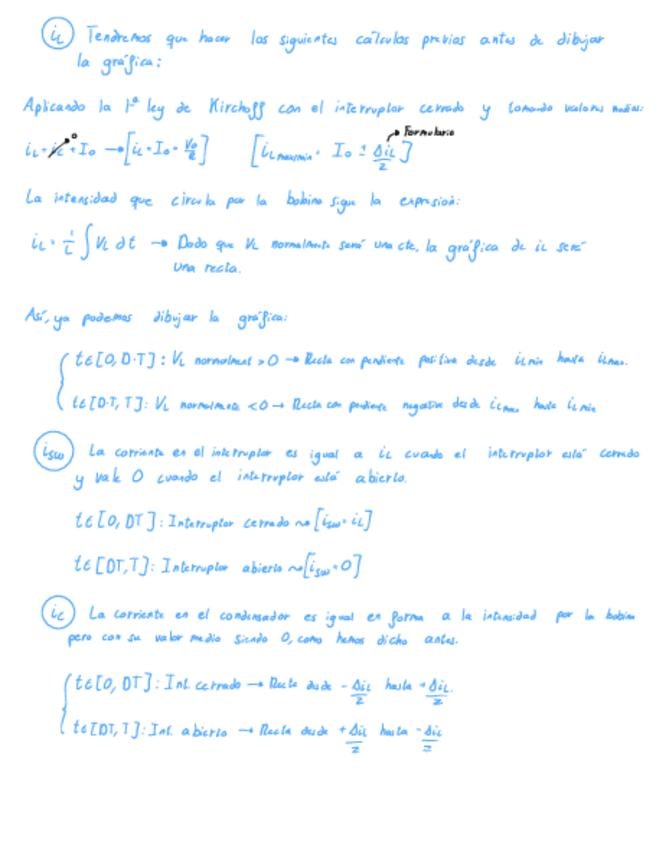 iL Tendremos que hacer los siguientes cálculos previos antes de dibujar
la gráfica:
Aplicando la 1ª ley de Kirchoff con el interruptor cerrado y tomando valores medios:
iL = iC + Io → [iL = Io = Vo/R] [iLmax/min = Io ± ΔiL/2]
0
Formulario
La intensidad que circula por la bobina sigue la expresión:
iL = 1/L ∫ VL dt → Dado que VL normalmente será una cte, la gráfica de iL será
una recta.
Así, ya podemos dibujar la gráfica:
t∈[0, D·T]: VL normalment > 0 → Recta con pendiente positiva desde iLmin hasta iLmax.
t∈[D·T, T]: VL normalmente < 0 → Recta con pendiente negativa desde iLmax hasta iLmin
isw La corriente en el interruptor es igual a iL cuando el interruptor está cerrado
y vale 0 cuando el interruptor está abierto.
t∈[0, DT]: Interruptor cerrado ⇝ [isw = iL]
t∈[DT, T]: Interruptor abierto ⇝ [isw = 0]
ic La corriente en el condensador es igual en forma a la intensidad por la bobina
pero con su valor medio siendo 0, como hemos dicho antes.
t∈[0, DT]: Int. cerrado → Recta desde -ΔiL/2 hasta +ΔiL/2.
t∈[DT, T]: Int. abierto → Recta desde +ΔiL/2 hasta -ΔiL/2